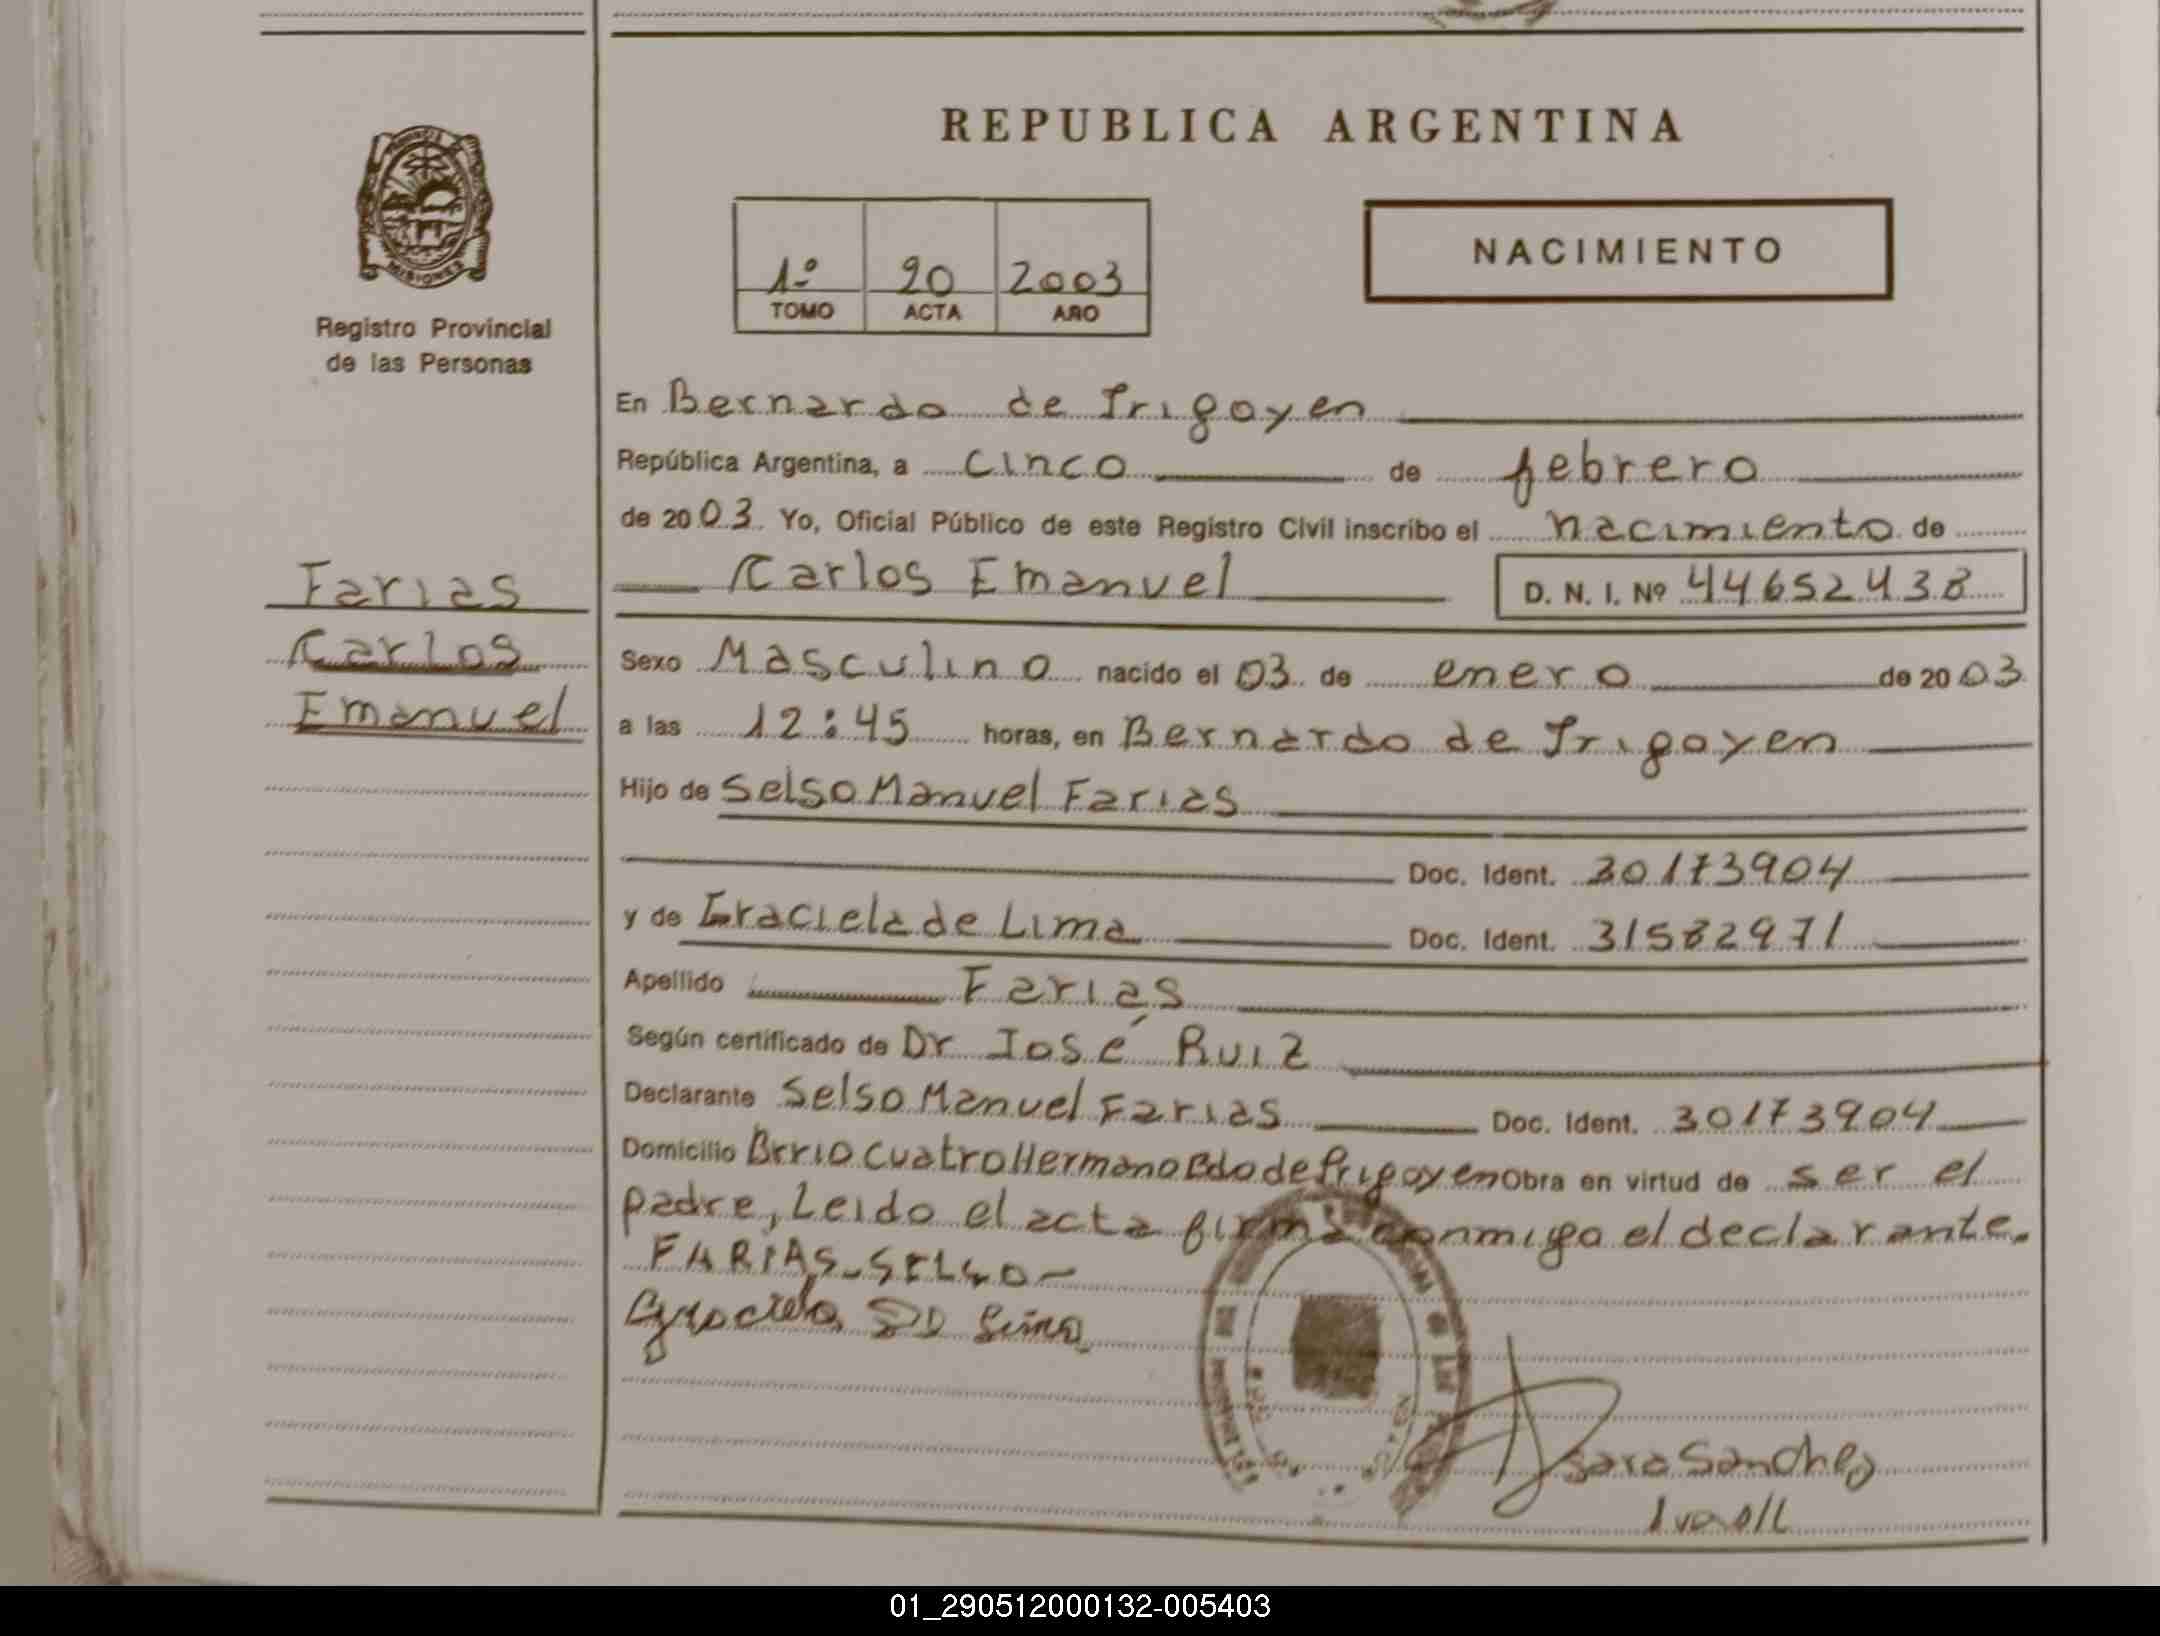 REPUBLICA ARGENTINA
MISIONES
Registro Provincial
de las Personas
1º 90 2003
TOMO ACTA AÑO
NACIMIENTO
En Bernardo de Irigoyen
República Argentina, a cinco de febrero
de 2003 Yo, Oficial Público de este Registro Civil inscribo el nacimiento de
Carlos Emanuel D. N. I. Nº 44652438
Farias
Carlos
Emanuel
Sexo Masculino nacido el 03 de enero de 2003
a las 12:45 horas, en Bernardo de Irigoyen
Hijo de Selso Manuel Farias
Doc. Ident. 30173904
y de Graciela de Lima Doc. Ident. 31582971
Apellido Farias
Según certificado de Dr José Ruiz
Declarante Selso Manuel Farias Doc. Ident. 30173904
Domicilio Brrio Cuatro Hermano Bdo de Irigoyen Obra en virtud de ser el
padre, Leido el acta firma conmigo el declarante.
FARIAS-SELSO-
Graciela De Lima
Sara Sanchez
01_290512000132-005403